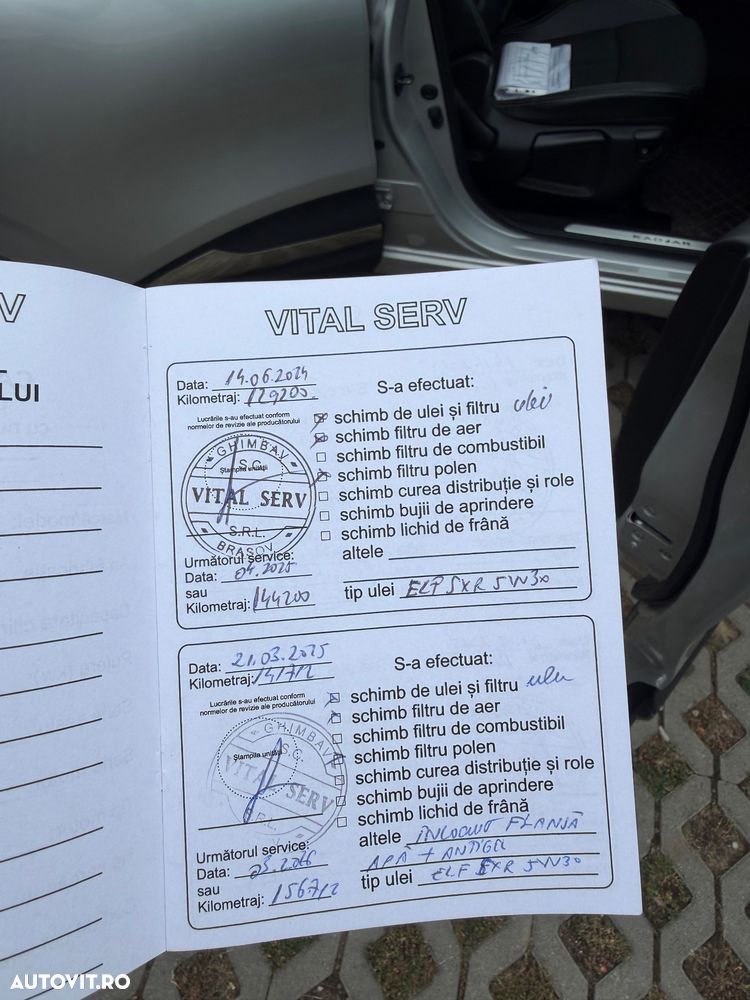 KADJAR
V
LUI
VITAL SERV
Data: 14.06.2024
Kilometraj: 129200
Lucrările s-au efectuat conform
normelor de revizie ale producătorului
S-a efectuat:
schimb de ulei și filtru ulei
schimb filtru de aer
schimb filtru de combustibil
schimb filtru polen
schimb curea distribuție și role
schimb bujii de aprindere
schimb lichid de frână
altele
tip ulei ELF SXR 5W30
GHIMBAV
S.C.
Ștampila unității
VITAL SERV
S.R.L.
BRAȘOV
Următorul service:
Data: 04.2025
sau
Kilometraj: 144200
Data: 21.03.2025
Kilometraj: 141712
Lucrările s-au efectuat conform
normelor de revizie ale producătorului
S-a efectuat:
schimb de ulei și filtru ulei
schimb filtru de aer
schimb filtru de combustibil
schimb filtru polen
schimb curea distribuție și role
schimb bujii de aprindere
schimb lichid de frână
altele INLOCUIT FLANSĂ
APĂ + ANTIGEL
tip ulei ELF SXR 5W30
GHIMBAV
S.C.
Ștampila unității
VITAL SERV
S.R.L.
Următorul service:
Data: 03.2026
sau
Kilometraj: 156712
AUTOVIT.RO